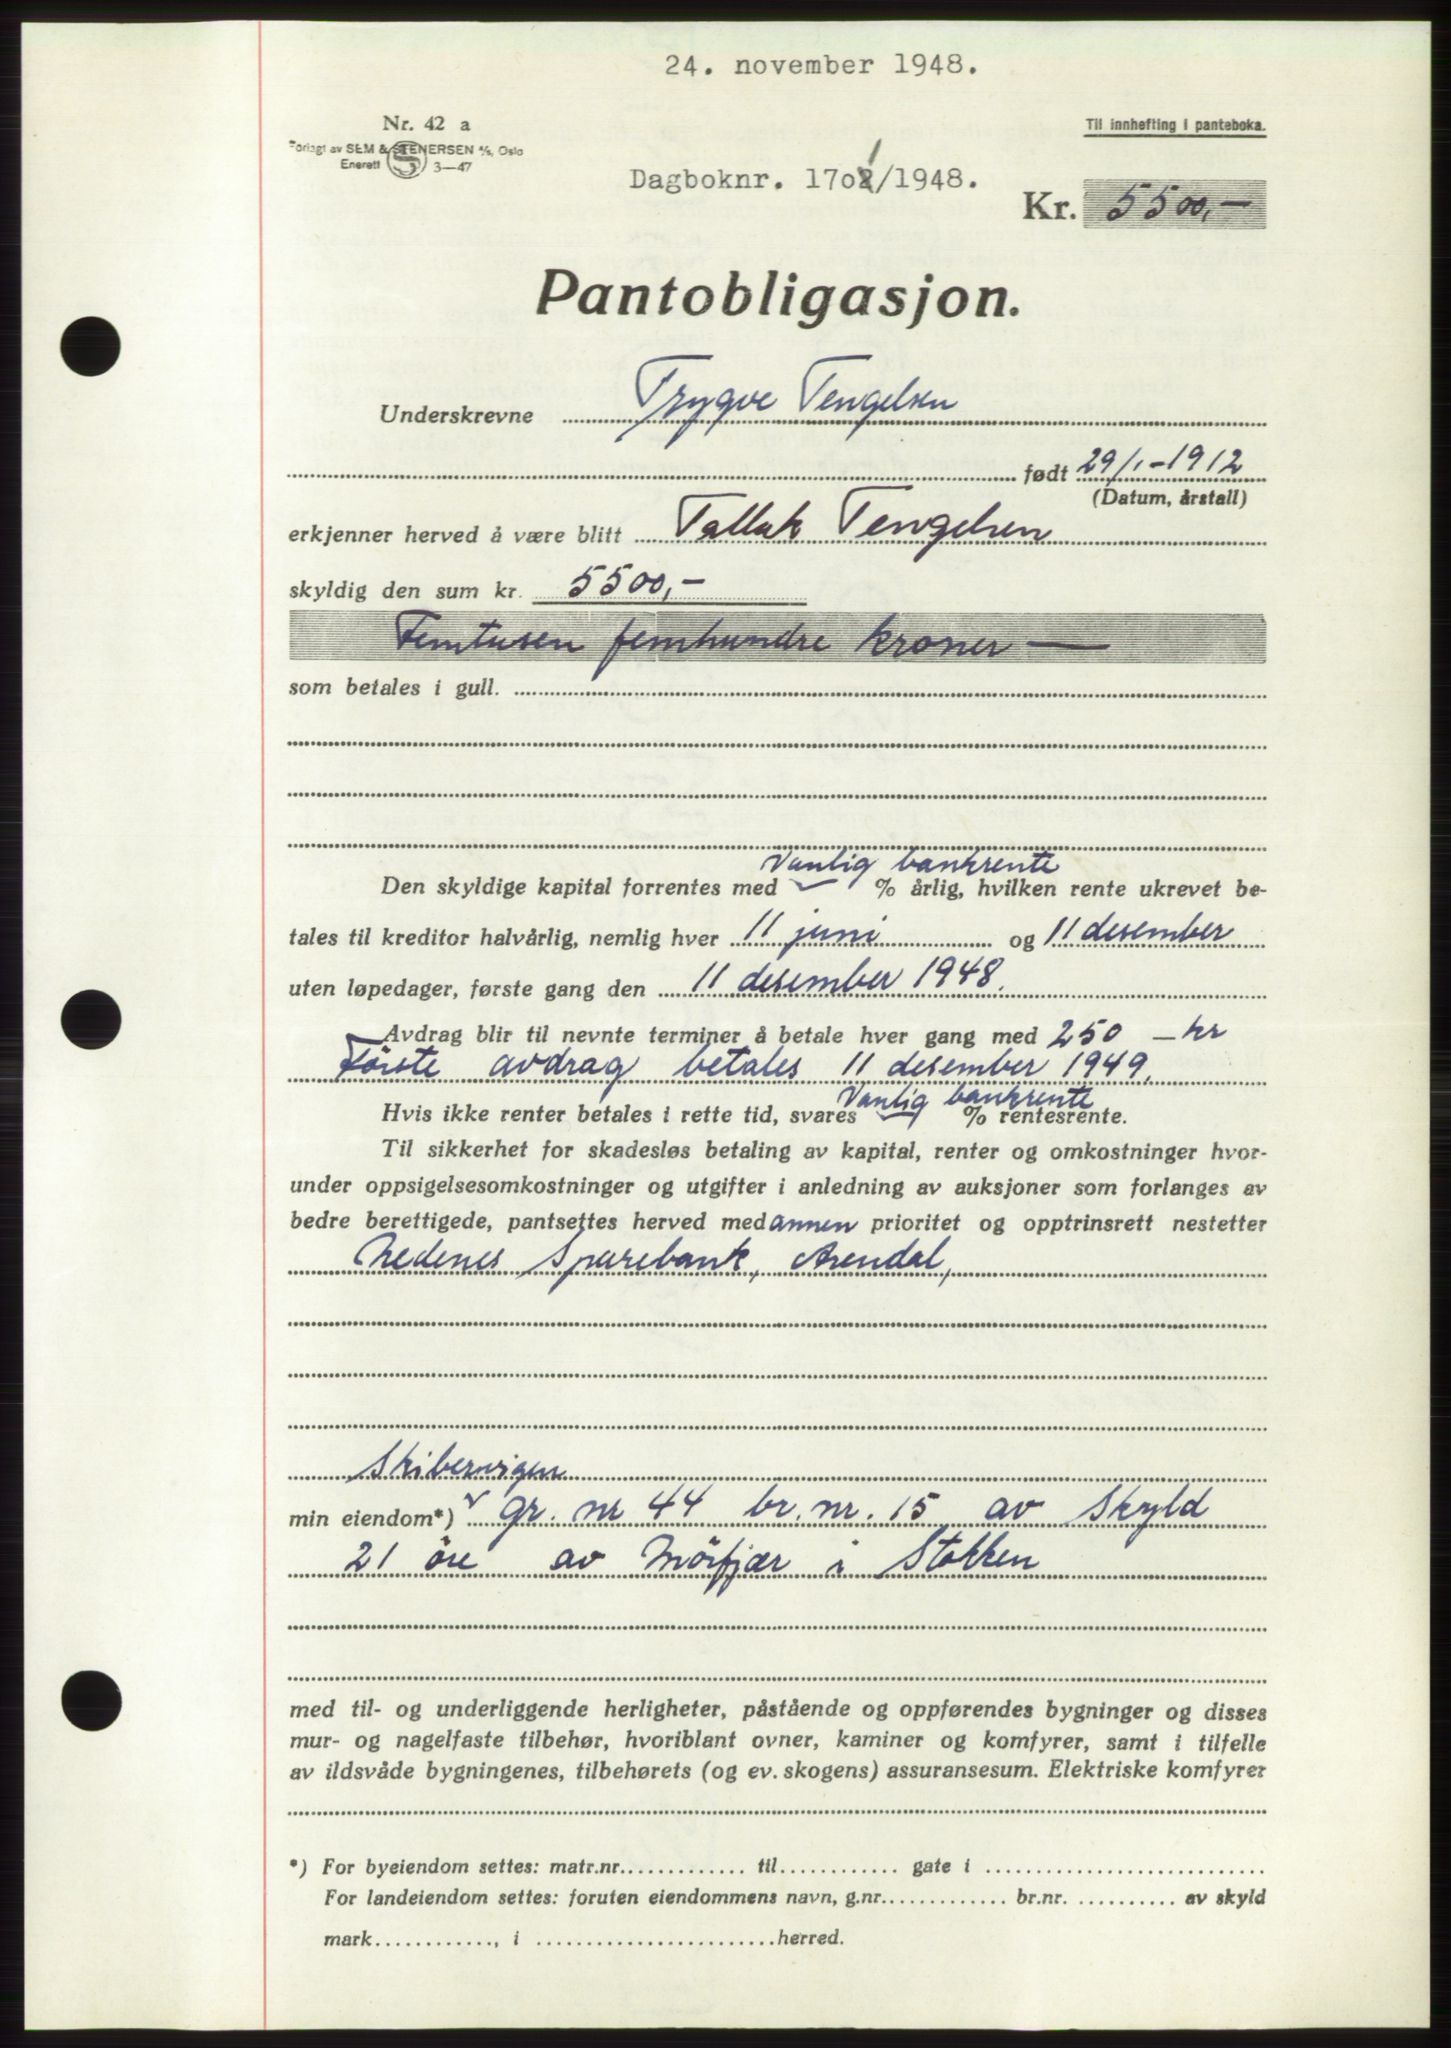 24. november 1948.
Nr. 42 a
Til innhefting i panteboka.
Forlagt av SEM & STENERSEN A/S, Oslo
Enerett S 3—47
Dagboknr. 1701/1948.
Kr. 5500,-
Pantobligasjon.
Underskrevne Trygve Tengelsen
født 29/1-1912
(Datum, årstall)
erkjenner herved å være blitt Tallak Tengelsen
skyldig den sum kr. 5500,-
Femtusen femhundre kroner —
som betales i gull.
Vanlig bankrente
Den skyldige kapital forrentes med % årlig, hvilken rente ukrevet be-
tales til kreditor halvårlig, nemlig hver 11 juni og 11 desember
uten løpedager, første gang den 11 desember 1948.
Avdrag blir til nevnte terminer å betale hver gang med 250 - kr
Første avdrag betales 11 desember 1949.
Vanlig bankrente
Hvis ikke renter betales i rette tid, svares % rentesrente.
Til sikkerhet for skadesløs betaling av kapital, renter og omkostninger hvor-
under oppsigelsesomkostninger og utgifter i anledning av auksjoner som forlanges av
bedre berettigede, pantsettes herved med annen prioritet og opptrinsrett nestetter
Nedenes Sparebank, Arendal,
Skibervigen
min eiendom*) gr. nr 44 br. nr. 15 av Skyld
21 öre av Mörfjær i Stokken
med til- og underliggende herligheter, påstående og oppførendes bygninger og disses
mur- og nagelfaste tilbehør, hvoriblant ovner, kaminer og komfyrer, samt i tilfelle
av ildsvåde bygningenes, tilbehørets (og ev. skogens) assuransesum. Elektriske komfyrer
*) For byeiendom settes: matr.nr............. til............ gate i ............................
For landeiendom settes: foruten eiendommens navn, g.nr............. br.nr. ........... av skyld
mark............, i ........................herred.